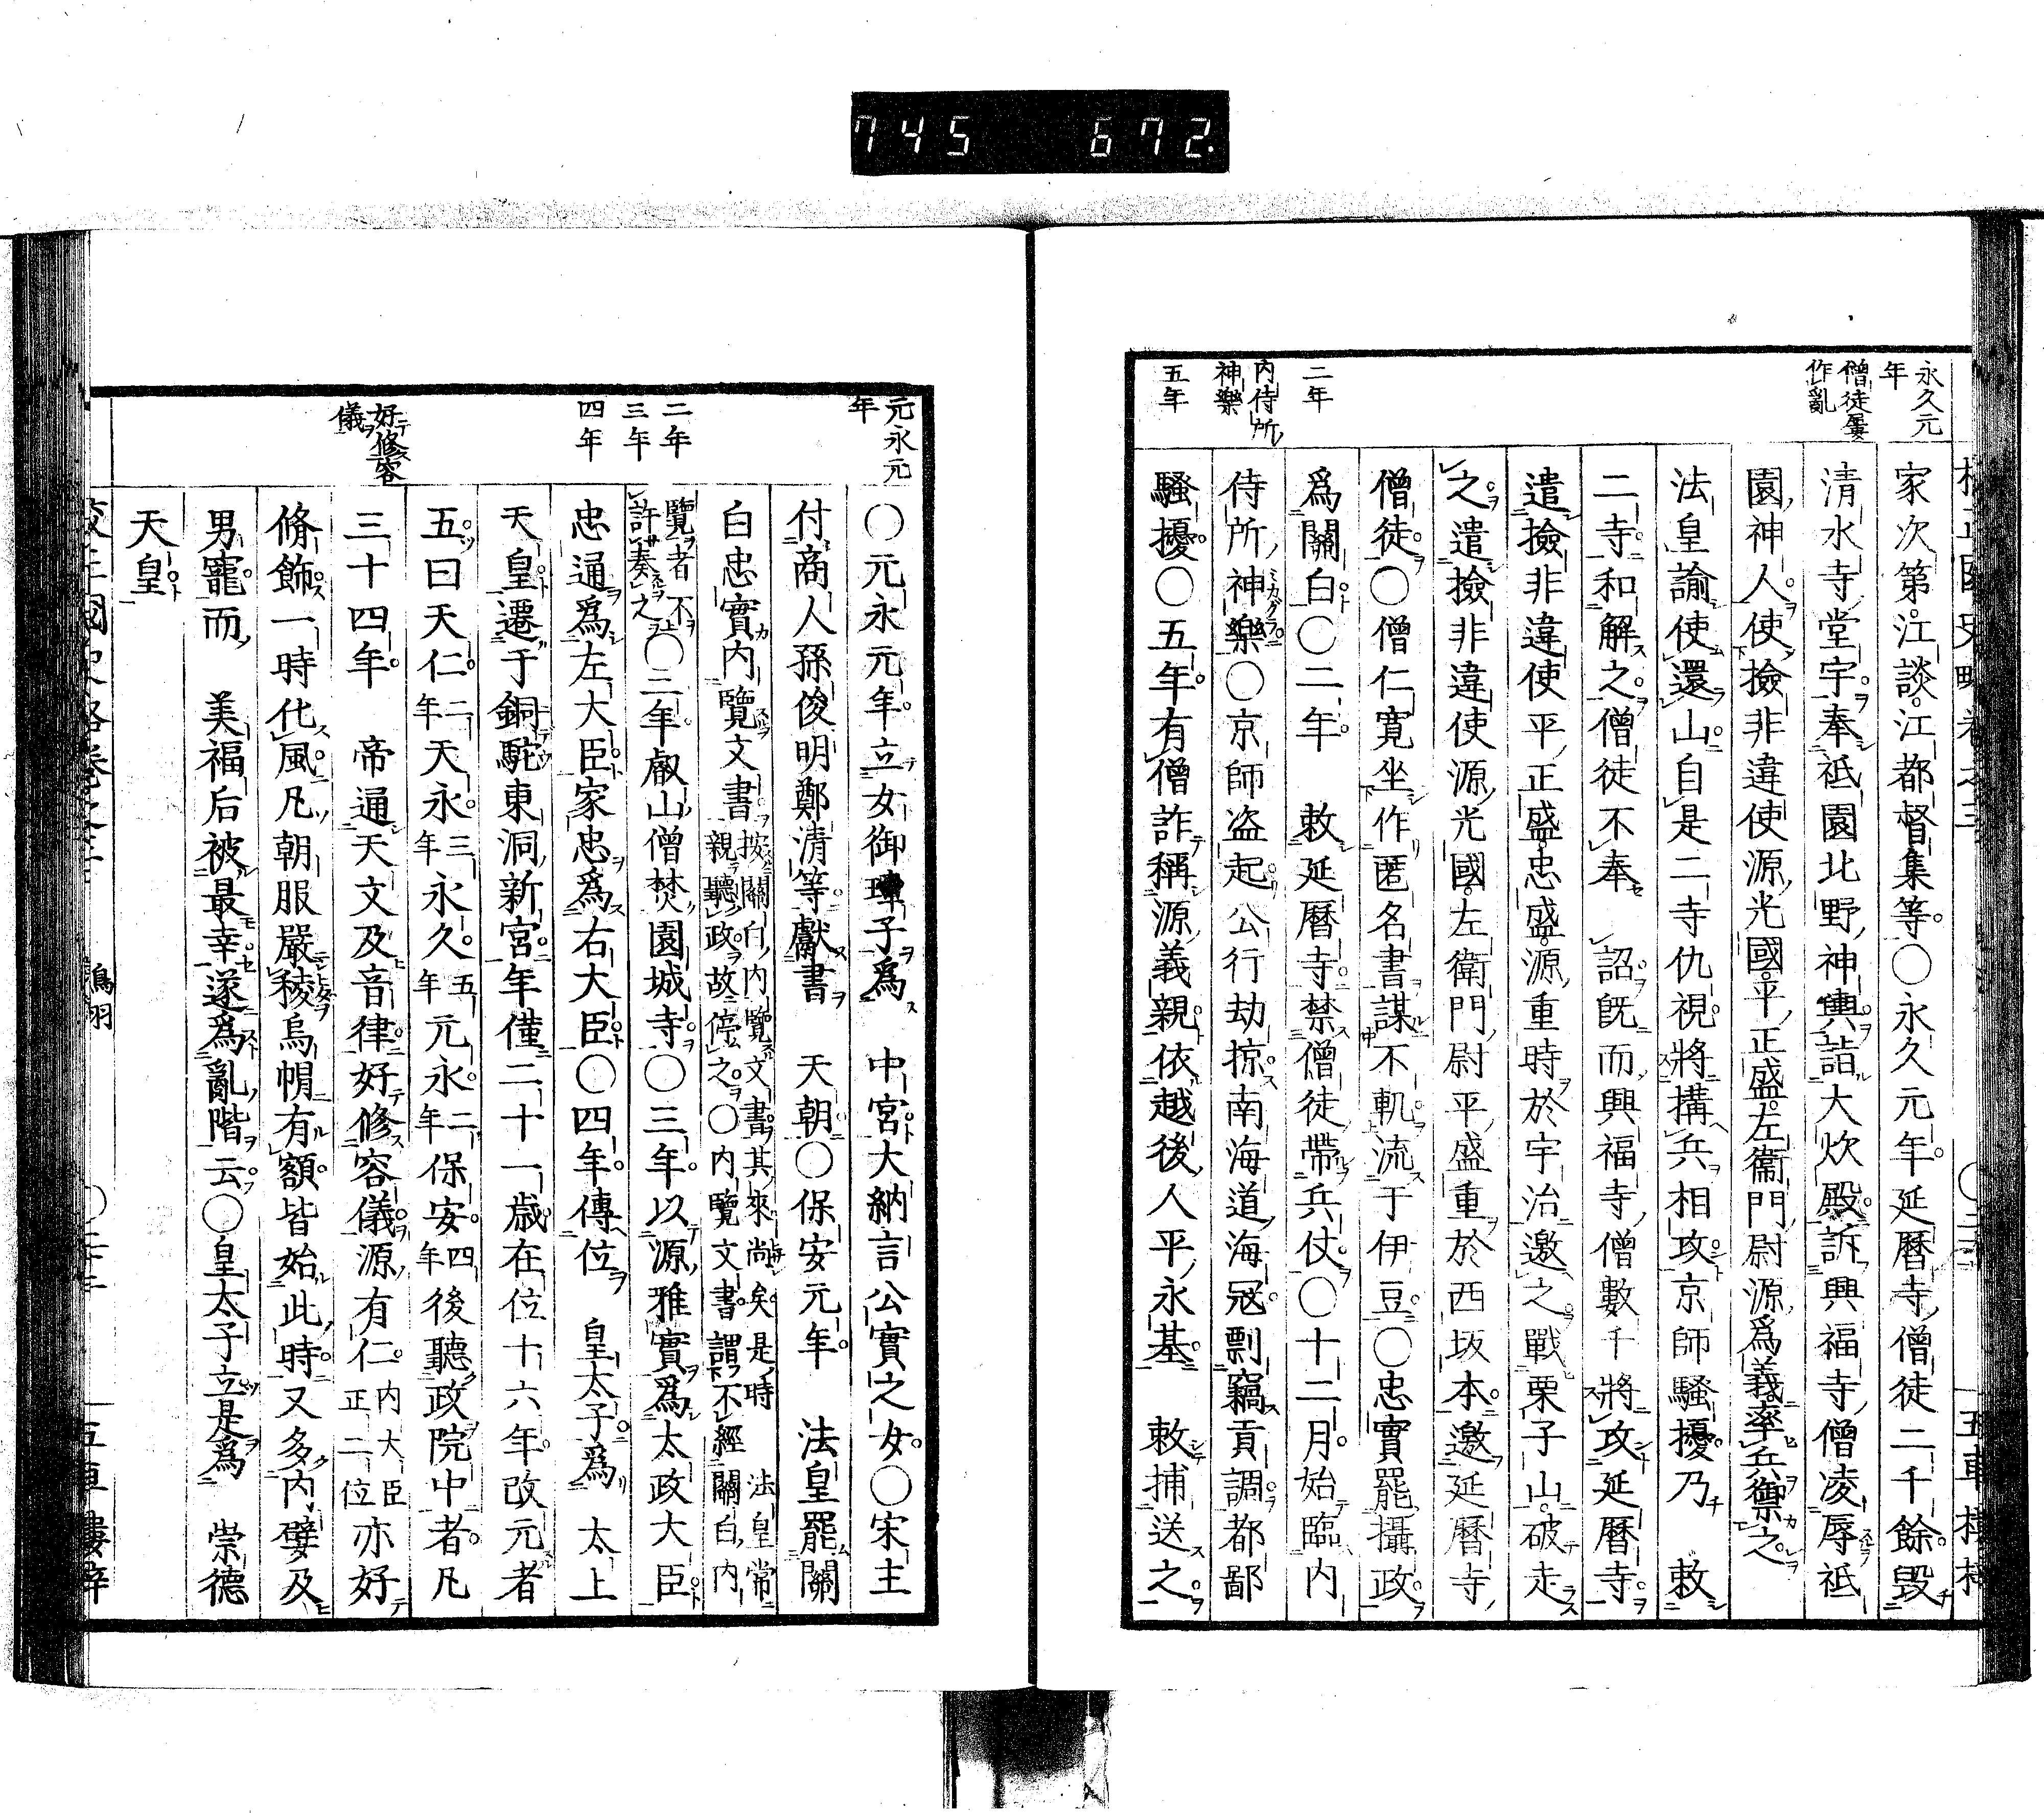 745 672.
永久元
年
僧徒屢
作亂
二年
内侍所
神樂
五年
家次第江談江都督集等〇永久元年延曆寺僧徒二千餘毀
清水寺堂宇奉祗園北野神輿詣大炊殿訴興福寺僧凌辱祗
園神人使撿非違使源光國平正盛左衞門尉源爲義率兵禦之
法皇諭使還山自是二寺仇視將搆兵相攻京師騷擾乃 敕
二寺和解之僧徒不奉 詔既而興福寺僧數千將攻延曆寺
遣撿非違使平正盛忠盛源重時於宇治邀之戰栗子山破走
之遣撿非違使源光國左衛門尉平盛重於西坂本邀延曆寺
僧徒〇僧仁寬坐作匿名書謀不軌流于伊豆〇忠實罷攝政
爲關白〇二年 敕延曆寺禁僧徒帶兵仗〇十二月始臨内
侍所神樂〇京師盜起公行劫掠南海道海冦剽竊貢調都鄙
騷擾〇五年有僧詐稱源義親依越後人平永基 敕捕送之
元永元
年
二年
三年
四年
好修容
儀
〇元永元年立女御璋子爲 中宮大納言公實之女〇宋主
付商人孫俊明鄭清等獻書 天朝〇保安元年 法皇罷關
白忠實内覽文書按關白内覽文書其來尚矣是時 法皇常
親聽政故停之〇内覽文書謂不經關白内
覽者不
許奏之〇二年叡山僧焚園城寺〇三年以源雅實爲太政大臣
忠通爲左大臣家忠爲右大臣〇四年傳位 皇太子爲 太上
天皇遷于銅駝東洞新宮年僅二十一歲在位十六年改元者
五曰天仁二年天永三年永久五年元永二年保安四年後聽政院中者凡
三十四年 帝通天文及音律好修容儀源有仁内大臣正二位亦好
脩飾一時化風凡朝服嚴稜烏帽有額皆始此時又多内嬖及
男寵而 美福后被最幸遂爲亂階云〇皇太子立是爲 崇德
天皇